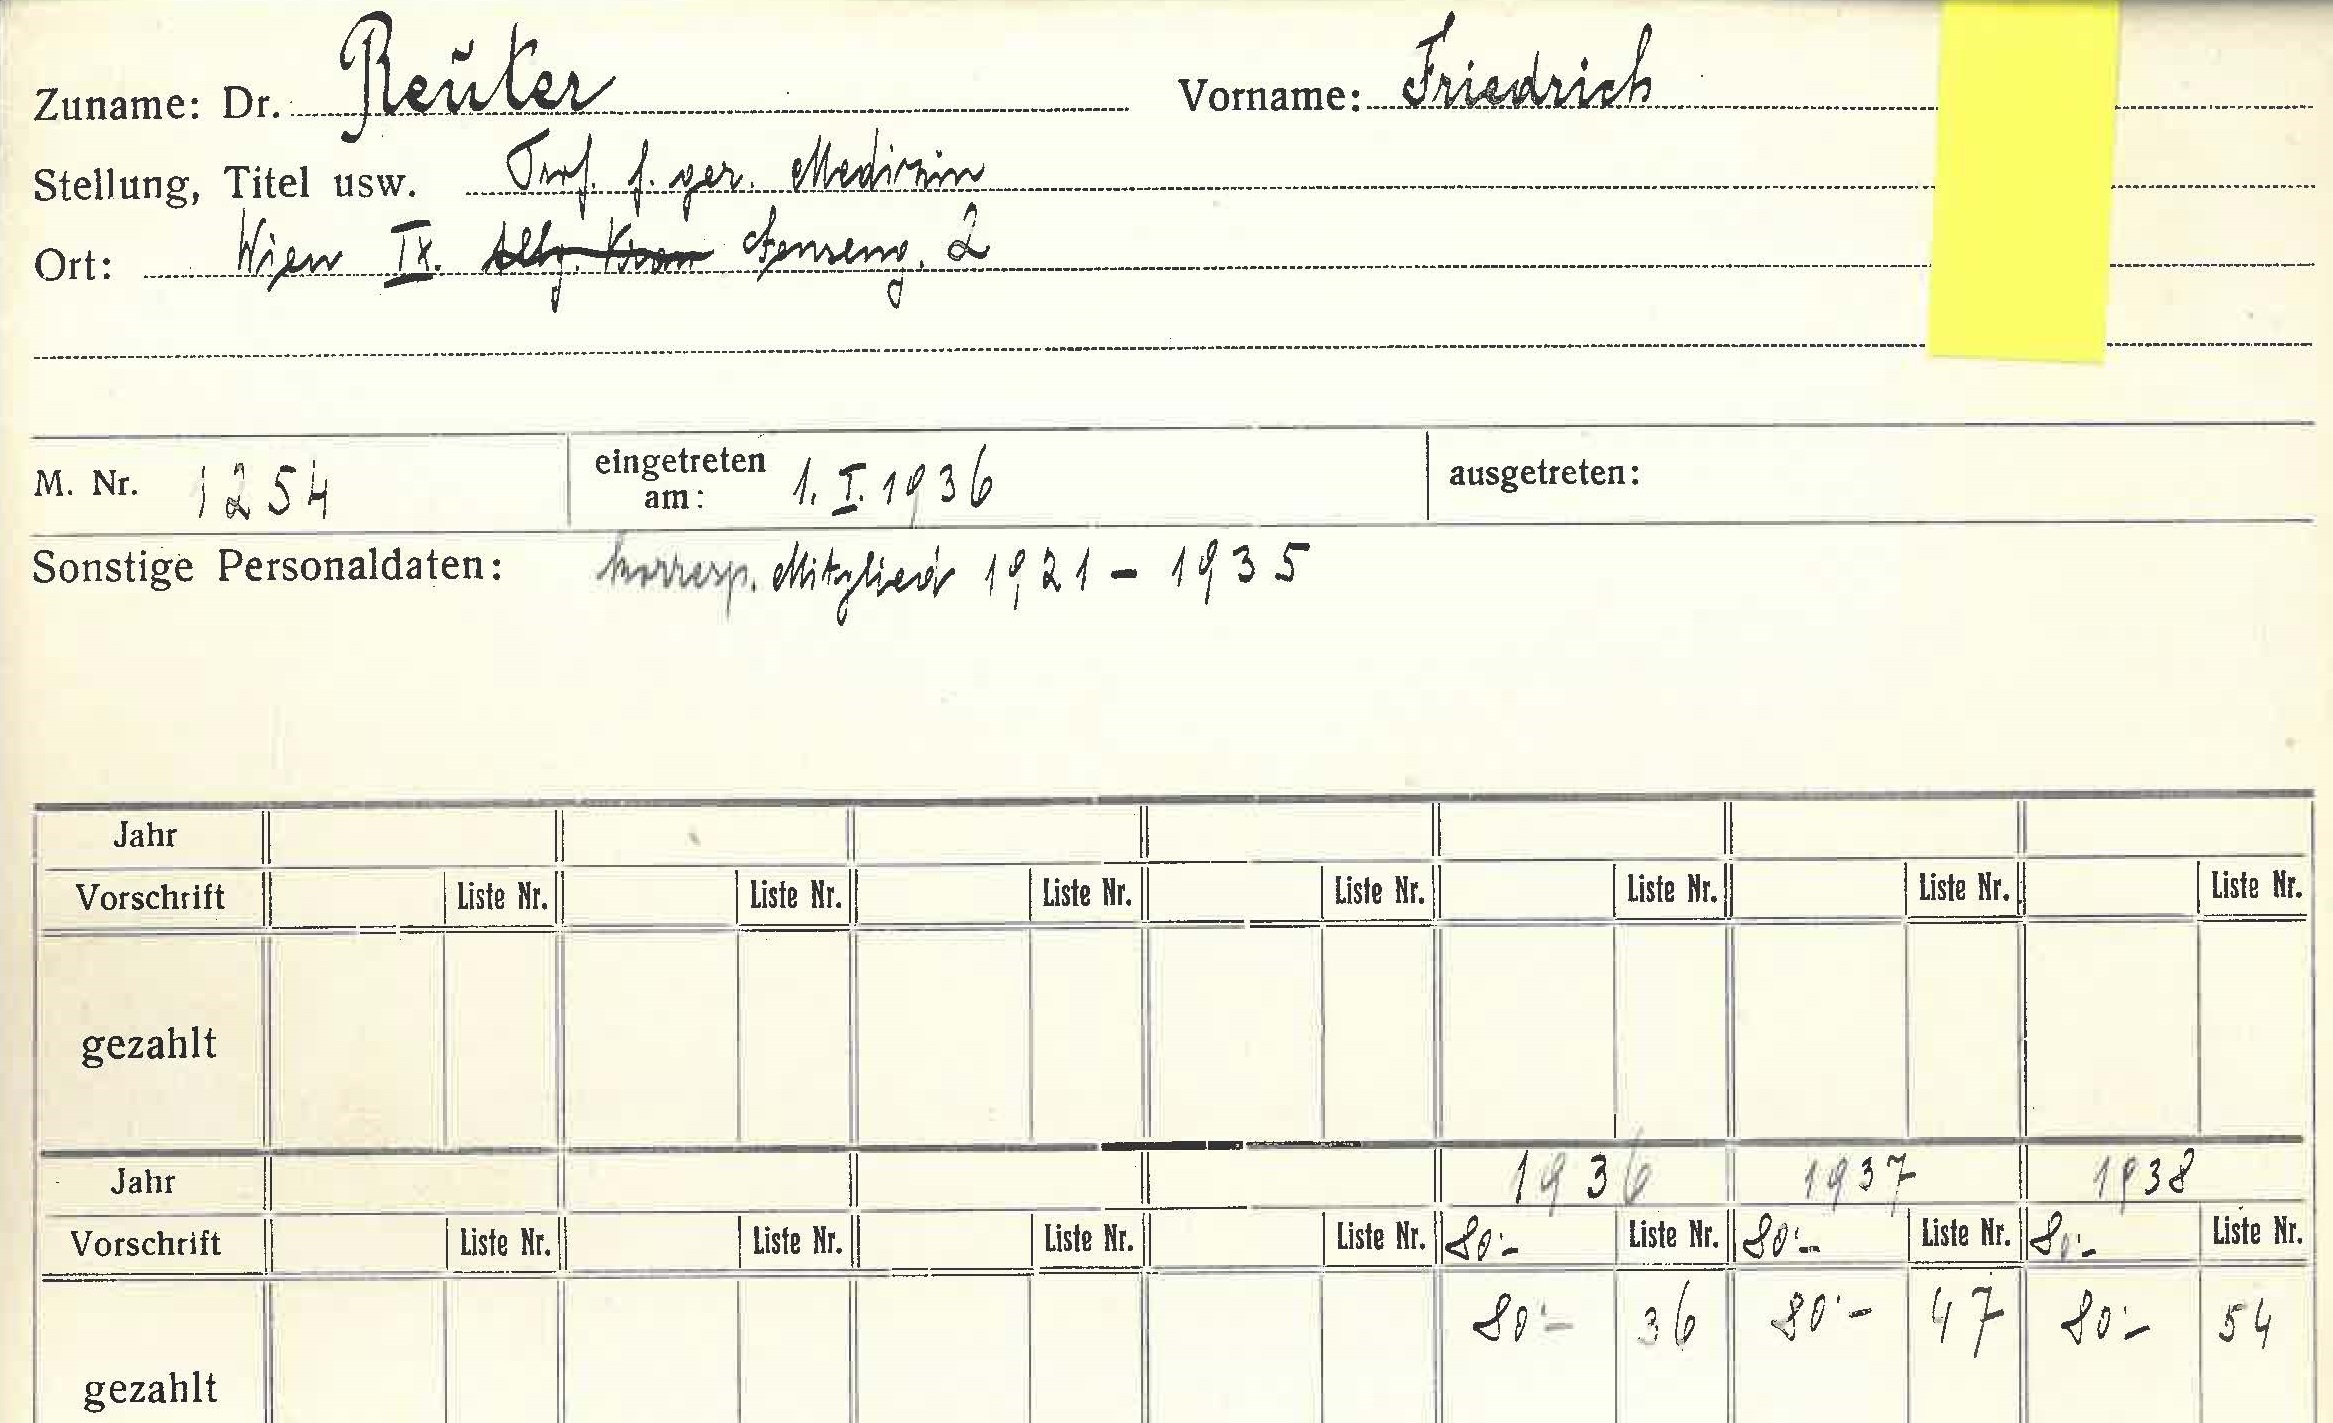 Zuname: Dr. Reuter Vorname: Friedrich
Stellung, Titel usw. Prof. f. ger. Medizin
Ort: Wien IX. Senseng. 2
M. Nr. 1254 eingetreten am: 1. I. 1936 ausgetreten:
Sonstige Personaldaten: korresp. Mitglied 1921 - 1935
Jahr
Vorschrift Liste Nr. Liste Nr. Liste Nr. Liste Nr. Liste Nr. Liste Nr. Liste Nr.
gezahlt
Jahr 1936 1937 1938
Vorschrift Liste Nr. Liste Nr. Liste Nr. Liste Nr. 80·- Liste Nr. 80·- Liste Nr. 80·- Liste Nr.
80·- 36 80·- 47 80·- 54
gezahlt